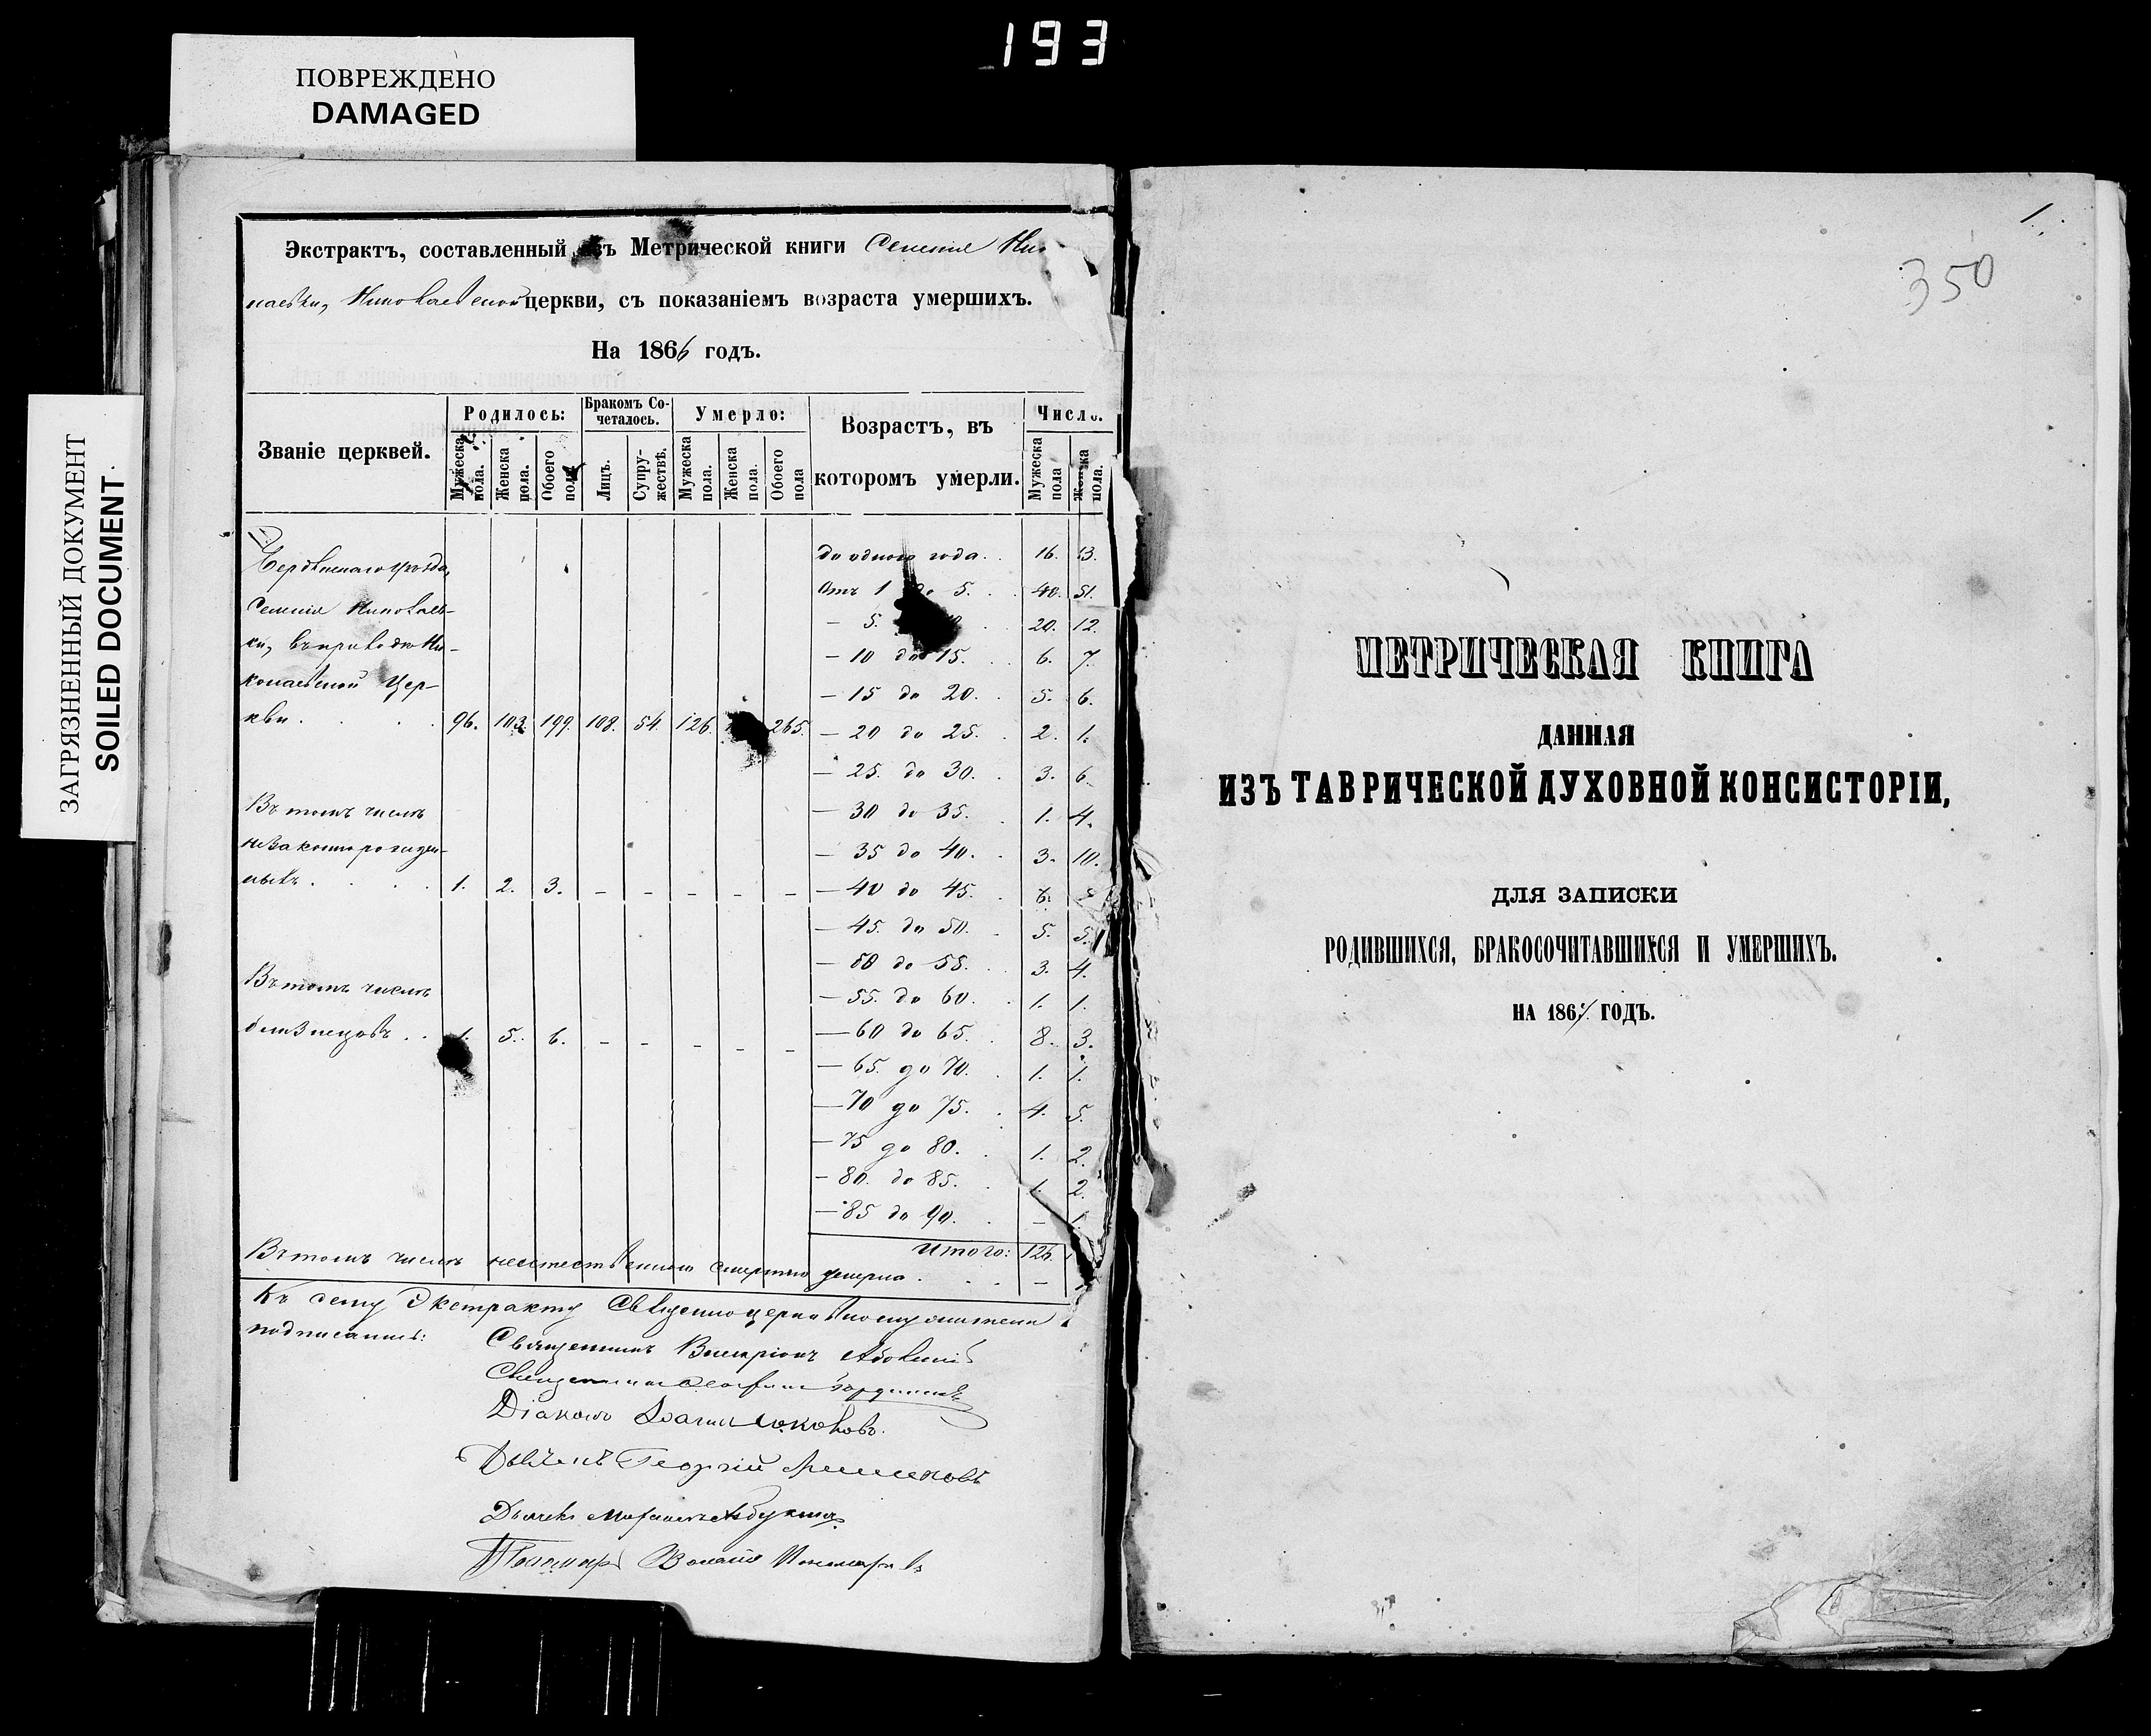 193
ПОВРЕЖДЕНО
DAMAGED
ЗАГРЯЗНЕННЫЙ ДОКУМЕНТ
SOILED DOCUMENT
Экстрактъ, составленный изъ Метрической книги Селенія Ни-
Николаевской церкви, съ показаніемъ возраста умершихъ.
На 1866 годъ.
Званіе церквей.
Родилось:
Бракомъ Со-
четалось.
Умерло:
Возрастъ, въ
которомъ умерли.
Число.
Мужеска пола.
Женска пола.
Обоего пола
Лицъ.
Супру-
жествъ.
Мужеска пола.
Женска пола.
Обоего пола
Мужеска пола
Женска пола.
Бердянскаго уѣзда,
Селенія Николаев-
ки, въ приходѣ Ни-
колаевской Цер-
кви . . . . 96. 103. 199. 108. 54. 126. 265.
Въ томъ числѣ
незаконнорожден-
ныхъ . . . . 1. 2. 3. - - - - -
Въ томъ числѣ
близнецовъ . . 1. 5. 6. - - - - -
до одного года . . 16. 13.
Отъ 1 до 5. . . 40. 51.
— 5. . 20. 12.
— 10 до 15. . . 6. 7.
— 15 до 20. . 5. 6.
— 20 до 25. . 2. 1.
— 25. до 30. . 3. 6.
— 30 до 35. . 1. 4.
— 35 до 40. . 3. 10.
— 40 до 45. . 6.
— 45. до 50. . 5. 5.
— 50 до 55. . 3. 4.
— 55. до 60. . 1. 1.
— 60 до 65. . 8. 3.
— 65. до 70. . 1. 1.
— 70 до 75. . 4. 5.
— 75 до 80. . 1. 2.
— 80. до 85. . 1. 2.
— 85 до 90. . — 1.
Итого: 126.
Въ томъ числѣ неестественною смертію умерло . . . —
Къ сему Экстракту Священноцерковнослужители
подписались:
Священникъ Иларіонъ
Священникъ
Діаконъ Іоаннъ Соколовъ.
Дьячекъ Георгій
Дьячекъ
Пономарь
1.
350
МЕТРИЧЕСКАЯ КНИГА
ДАННАЯ
ИЗЪ ТАВРИЧЕСКОЙ ДУХОВНОЙ КОНСИСТОРІИ,
ДЛЯ ЗАПИСКИ
РОДИВШИХСЯ, БРАКОСОЧИТАВШИХСЯ И УМЕРШИХЪ.
НА 186 ГОДЪ.